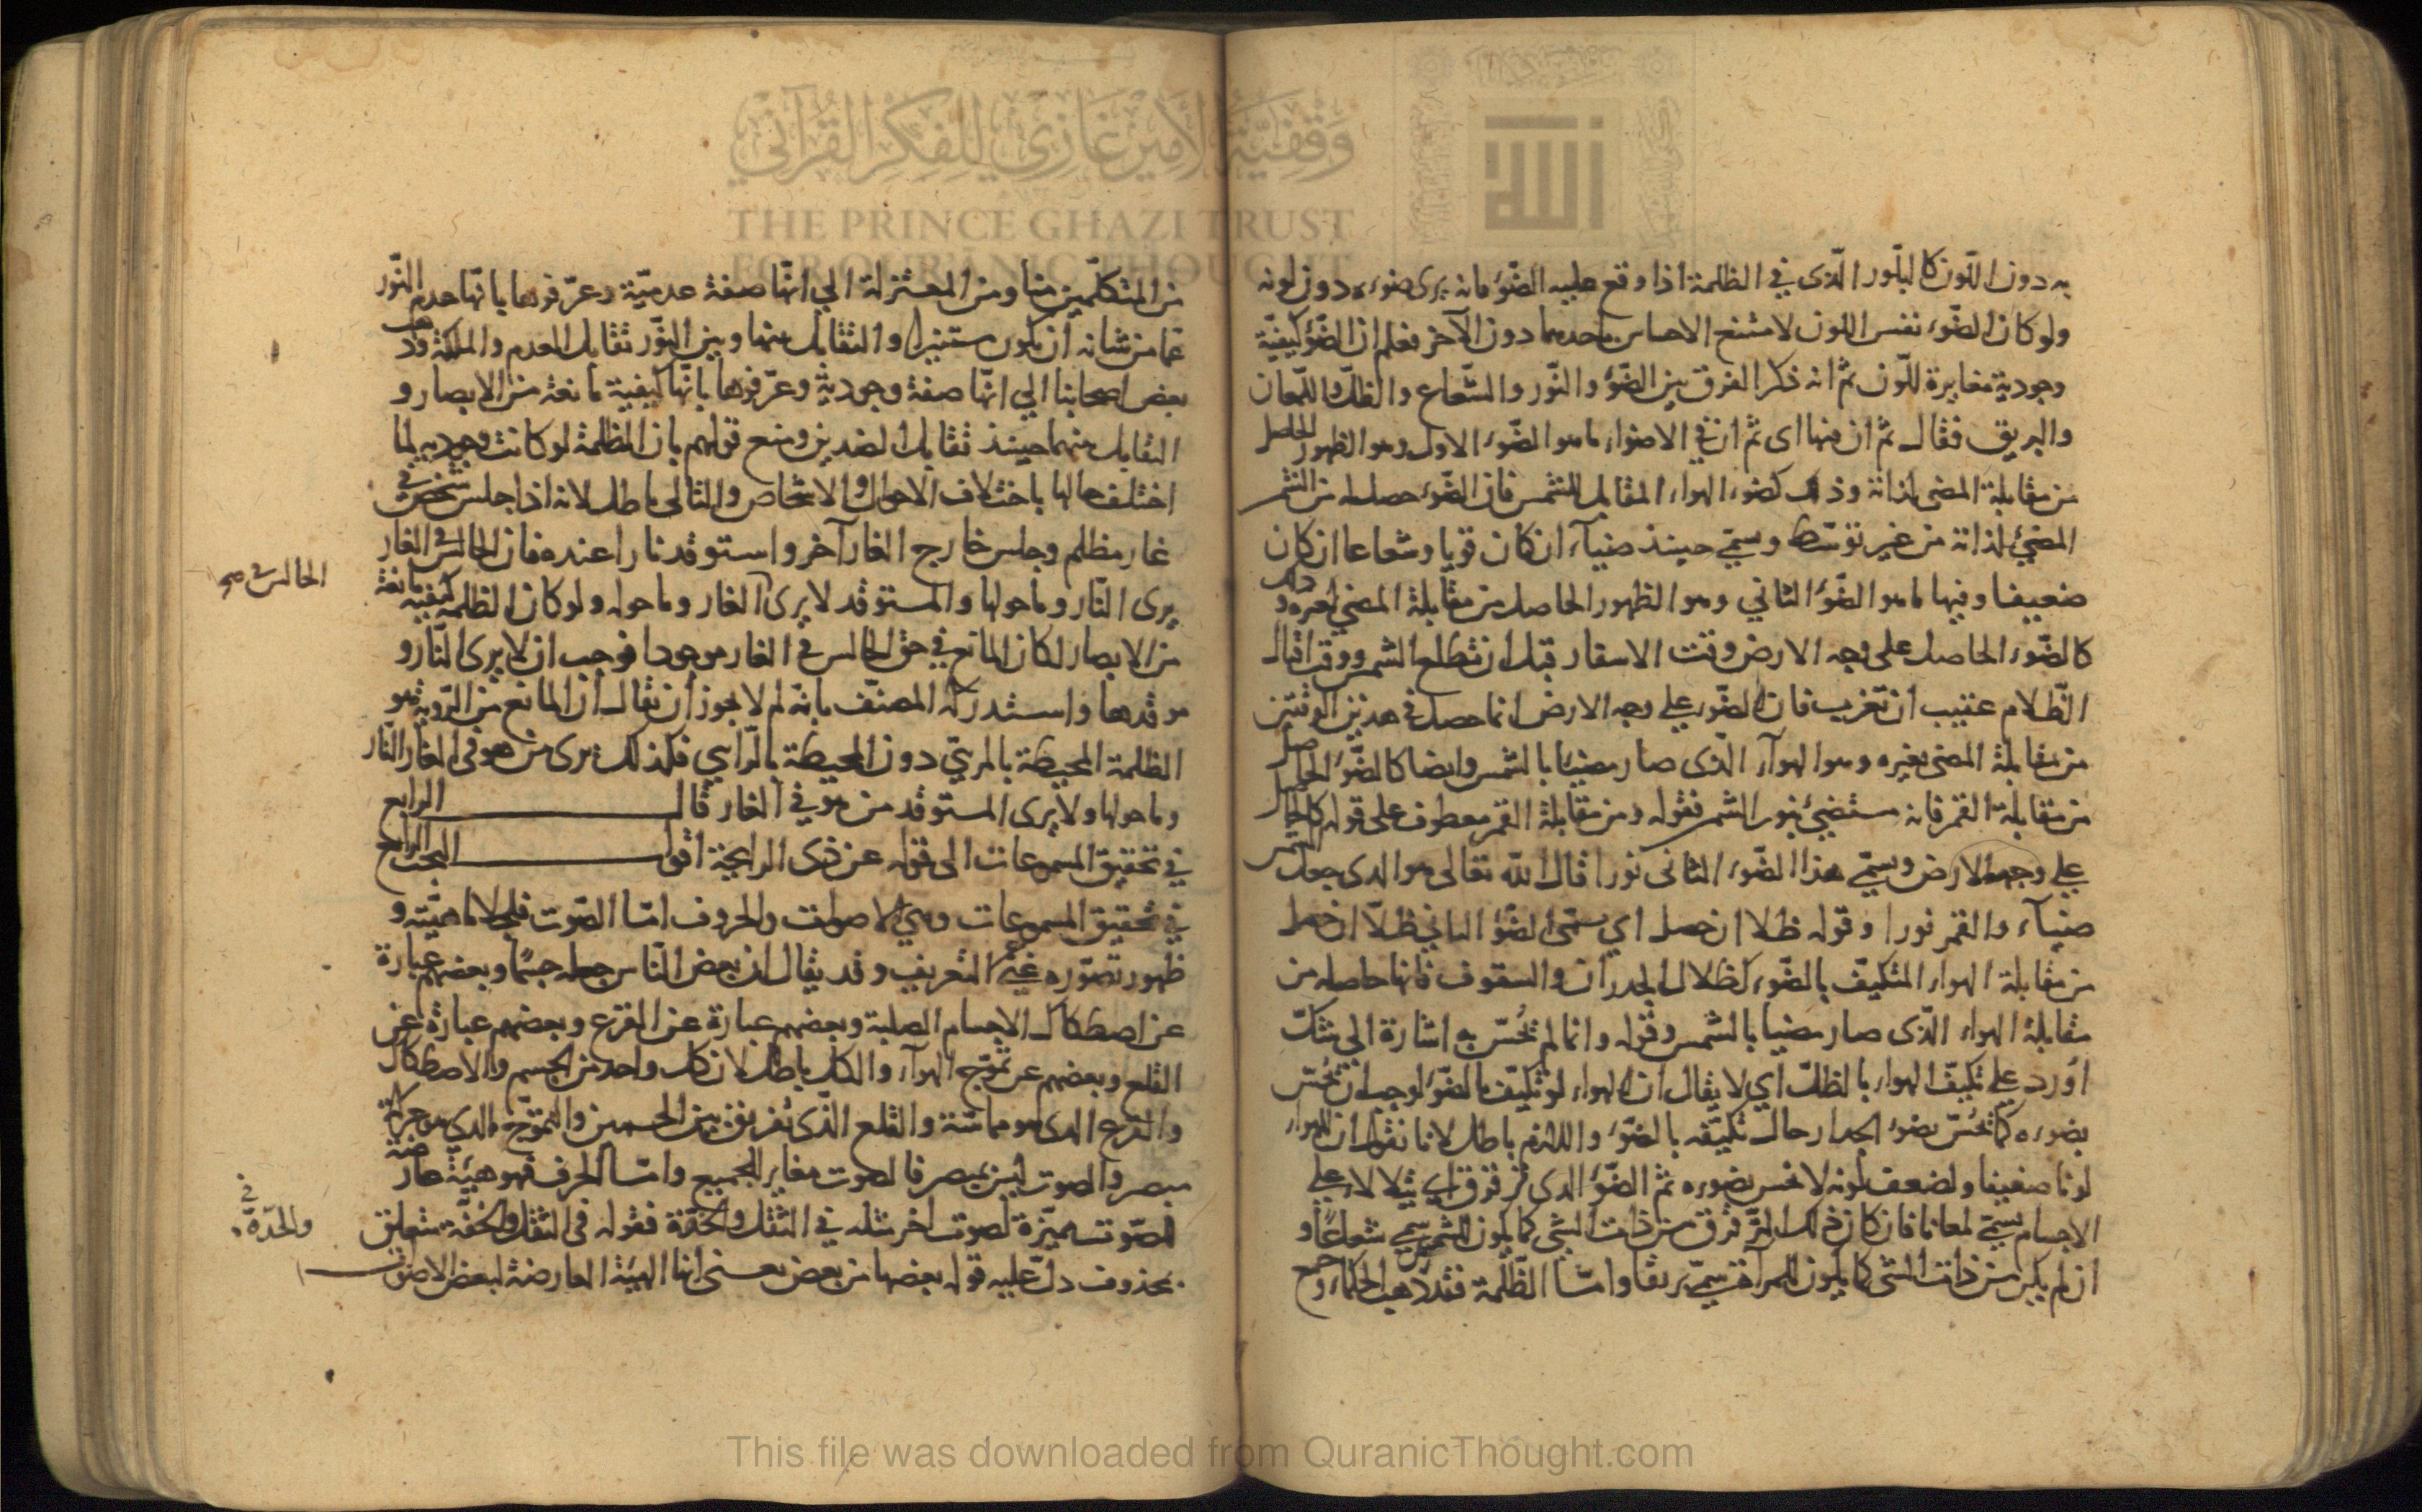 به دون اللّون كالبلّور الّذى في الظلمة اذا وقع عليه الضّوء فانه يرى ضوءه دون لونه
ولو كان الضّوء نفس اللون لامتنع الاحساس باحدهما دون الآخر فعلم ان الضّوء كيفيّة
وجودية مغايرة للّون ثمّ انه ذكر الفرق بين الضّوء والنّور والشّعاع والظلّ واللّمعان
والبريق فقال ثمّ ان منها اى ثمّ ان في الاضواء ما هو الضّوء الاول وهو الظهور الحاصل
من مقابلة المضى لذاته وذلك كضوء الهواء المقابل للشمس فان الضّوء حصل له من الشمس
المضيئ لذاته من غير توسّط وسمّي حينئذ ضياء ان كان قويا وشعاعا ان كان
ضعيفا وفيها ما هو الضّوء الثاني وهو الظهور الحاصل من مقابلة المضي لغيره وذلك
كالضّوء الحاصل على وجه الارض وقت الاسفار قبل ان تطلع الشمس ووقت اقبال
الظّلام عقيب ان تغرب فان الضّوء على وجه الارض انما حصل في هذين الوقتين
من مقابلة المضى بغيره وهو الهوآء الّذى صار مضيئا بالشمس وايضا كالضّوء الحاصل
من مقابلة القمر فانه مستضيئ بنور الشمس فقوله ومن مقابلة القمر معطوف على قوله كالحاصل
على وجه الارض وسمّي هذا الضّوء الثانى نورا قال الله تعالى هو الذى جعل الشمس
ضياء والقمر نورا وقوله ظلا ان حصل اي سمّى الضّوء الثاني ظلّا ان حصل
من مقابلة الهواء المتكيّف بالضّوء كظلال الجدران والسقوف فانها حاصله من
مقابلة الهواء الّذى صار مضيا بالشمس وقوله وانما لم يُحسّ به اشارة الى شكّ
اورد على تكيّف الهواء بالظلّ اي لا يقال ان الهواء لو تكيّف بالضّوء لوجب ان يُحسّ
بضوءه كما يُحسّ بضوء الجدار حال تكيّفه بالضّوء واللازم باطل لانا نقول ان للهواء
لونا ضعيفا ولضعف لونه لا يحس بضوءه ثمّ الضّوء الذى ترقرق اي يتلالا على
الاجسام يسمّى لمعانا فان كان ذلك الترقرق من ذات الشى كما يكون للشمس سمي شعاعًا و
ان لم يكن من ذات الشى كما يكون للمرآة سمّي بريقا وامّا الظّلمة فقد ذهب الحكماء وجمع
من المتكلّمين منا ومن المعتزلة الى انّها صفة عدميّة وعرّفوها بانّها عدم النّور
عما من شانه ان يكون مستنيرا والتقابل بينها وبين النّور تقابل العدم والملكة وذهب
بعض اصحابنا الى انّها صفة وجوديّة وعرّفوها بانّها كيفية مانعة من الابصار و
التقابل بينهما حينئذ تقابل الضدين ومنع قولهم بان الظلمة لو كانت وجوديه لما
اختلف حالها باختلاف الاحوال والاشخاص والتالى باطل لانه اذا جلس شخص في
غار مظلم وجلس خارج الغار آخر واستوقد نارا عنده فان الجالس في الغار
يرى النّار وما حولها والمستوقد لا يرى الغار وما حوله ولو كان الظلمة كيفيه مانعة
من الابصار لكان المانع في حق الجالس في الغار موجودا فوجب ان لا يرى النّار و
موقدها واستدركه المصنّف بانّه لم لا يجوز ان يقال ان المانع من الرّوية هو
الظلمة المحيطة بالمرئيّ دون المحيطة بالرّايي فلذلك يرى من هو فى الغار النّار
وما حولها ولا يرى المستوقد من هو في الغار قال الرابع
في تحقيق المسموعات الى قوله عن ذى الرايحة اقول البحث الرابع
في تحقيق المسموعات وهي الاصوات والحروف امّا الصّوت فلجلاء ماهيّته و
ظهور تصوّره غني عن التعريف وقد يقال ان بعض النّاس جعله جسمًا وبعضهم عبارة
عن اصطكاك الاجسام الصلبة وبعضهم عبارة عن القرع وبعضهم عبارة عن
القلع وبعضهم عن تموّج الهوآء والكل باطل لان كل واحد من الجسم والاصطكاك
والقرع الذى هو مماسّة والقلع الّذى تفريق بين الجسمين والتموّج الذي هو حركة
مبصر والصوت ليس بمبصر فالصوت مغاير للجميع وامّا الحرف فهو هيئة عارضة
للصّوت مميّزة لصوت اخر مثله في الثقل والخفّة فقوله فى الثقل والخفّة متعلق
بمحذوف دلّ عليه قوله بعضها من بعض يعنى انها الهيئة العارضة لبعض الاصوات
الجالس في صح
في
والحدّة
وقفيّة الأمير غازي للفكر القرآني
THE PRINCE GHAZI TRUST
FOR QUR'ĀNIC THOUGHT
This file was downloaded from QuranicThought.com